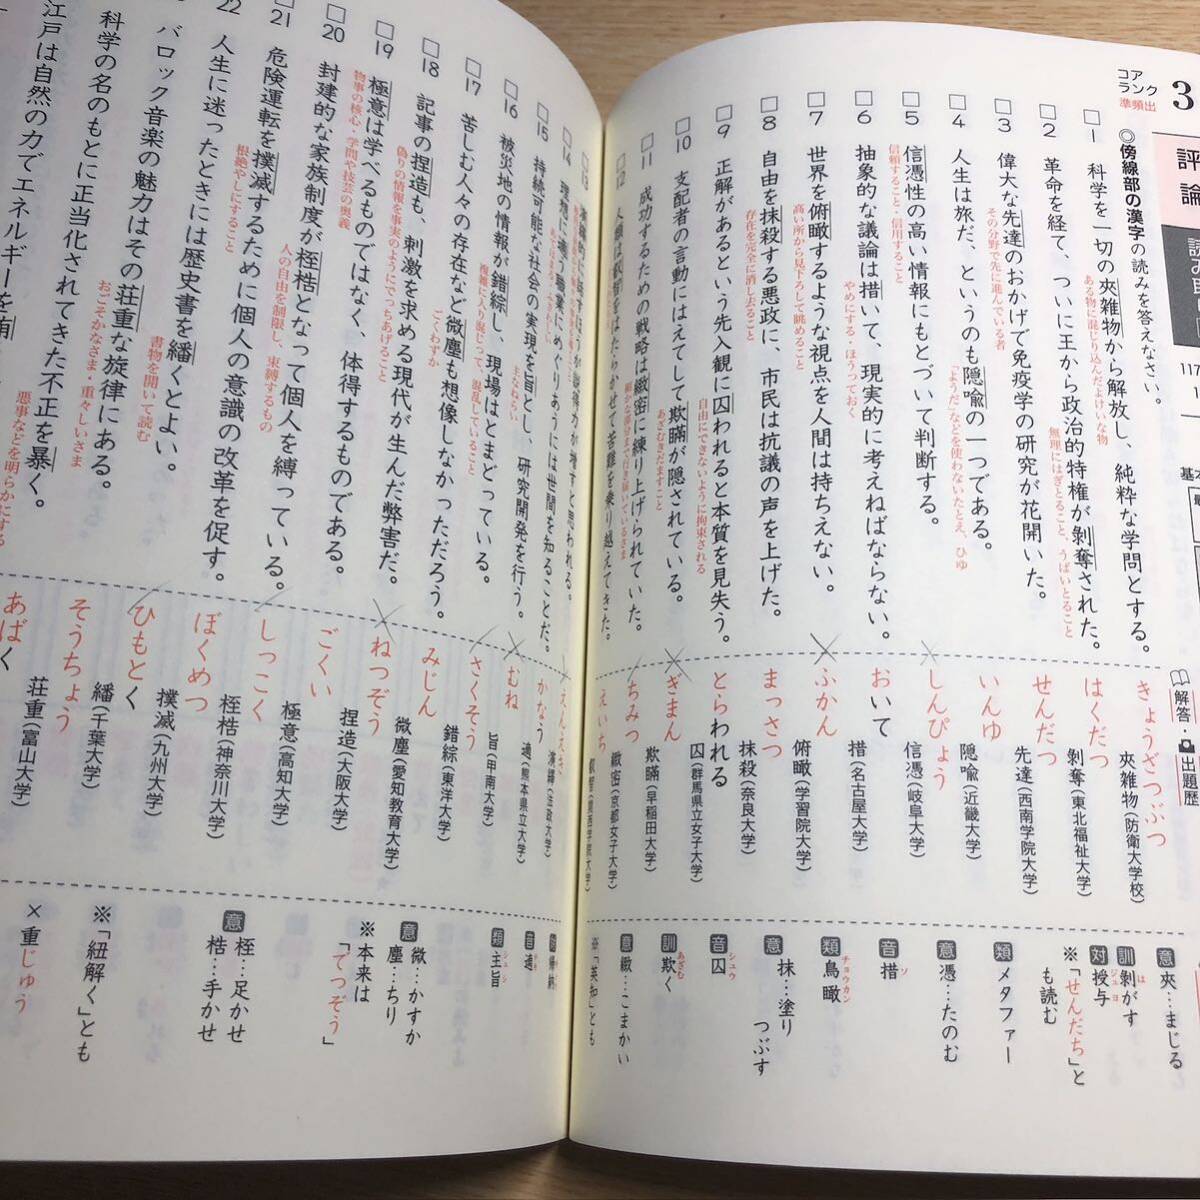 3
コア
ランク
準頻出
評論
117
基本
◎傍線部の漢字の読みを答えなさい。
解答・出題歴
□1 科学を一切の夾雑物から解放し、純粋な学問とする。
ある物に混じり込んだよけいな物
きょうざつぶつ
夾雑物(防衛大学校)
意 夾…まじる
□2 革命を経て、ついに王から政治的特権が剝奪された。
無理にはぎとること、うばいとること
はくだつ
剝奪(東北福祉大学)
訓 剝がす
は
対 授与
ジュヨ
□3 偉大な先達のおかげで免疫学の研究が花開いた。
その分野で先に進んでいる者
せんだつ
先達(西南学院大学)
※「せんだち」と
も読む
□4 人生は旅だ、というのも隠喩の一つである。
「ようだ」などを使わないたとえ、ひゆ
いんゆ
隠喩(近畿大学)
類 メタファー
□5 信憑性の高い情報にもとづいて判断する。
信頼すること・信用すること
しんぴょう
信憑(岐阜大学)
意 憑…たのむ
□6 抽象的な議論は措いて、現実的に考えねばならない。
やめにする・ほうっておく
おいて
措(名古屋大学)
音 措
ソ
□7 世界を俯瞰するような視点を人間は持ちえない。
高い所から見下ろして眺めること
ふかん
俯瞰(学習院大学)
類 鳥瞰
チョウカン
□8 自由を抹殺する悪政に、市民は抗議の声を上げた。
存在を完全に消し去ること
まっさつ
抹殺(奈良大学)
意 抹…塗り
つぶす
□9 正解があるという先入観に囚われると本質を見失う。
自由にできないように拘束される
とらわれる
囚(群馬県立女子大学)
音 囚
シュウ
□10 支配者の言動にはえてして欺瞞が隠されている。
あざむきだますこと
ぎまん
欺瞞(早稲田大学)
訓 欺く
あざむ
□11 成功するための戦略は緻密に練り上げられていた。
細かな部分まで行き届いているさま
ちみつ
緻密(京都女子大学)
意 緻…こまかい
□12 人類は叡智をはたらかせて苦難を乗り越えてきた。
えいち
叡智(関西学院大学)
※「英知」とも
□13 演繹的に話すほうが説得力が増すと思われる。
えんえき
演繹(法政大学)
□14 理想に適う職業にめぐりあうには世間を知ることだ。
かなう
適(熊本県立大学)
音 適
□15 持続可能な社会の実現を旨とし、研究開発を行う。
主なねらい
むね
旨(甲南大学)
類 主旨
シュシ
□16 被災地の情報が錯綜し、現場はとまどっている。
複雑に入り混じって、混乱していること
さくそう
錯綜(東洋大学)
□17 苦しむ人々の存在など微塵も想像しなかっただろう。
ごくわずか
みじん
微塵(愛知教育大学)
意 微…かすか
塵…ちり
□18 記事の捏造も、刺激を求める現代が生んだ弊害だ。
偽りの情報を事実のようにでっちあげること
ねつぞう
捏造(大阪大学)
※本来は
「でつぞう」
□19 極意は学べるものではなく、体得するものである。
物事の核心・学問や技芸の奥義
ごくい
極意(高知大学)
□20 封建的な家族制度が桎梏となって個人を縛っている。
人の自由を制限し、束縛するもの
しっこく
桎梏(神奈川大学)
意 桎…足かせ
梏…手かせ
□21 危険運転を撲滅するために個人の意識の改革を促す。
根絶やしにすること
ぼくめつ
撲滅(九州大学)
22 人生に迷ったときには歴史書を繙くとよい。
書物を開いて読む
ひもとく
繙(千葉大学)
※「紐解く」とも
バロック音楽の魅力はその荘重な旋律にある。
おごそかなさま・重々しいさま
そうちょう
荘重(富山大学)
×重じゅう
科学の名のもとに正当化されてきた不正を暴く。
悪事などを明らかにする
あばく
江戸は自然の力でエネルギーを